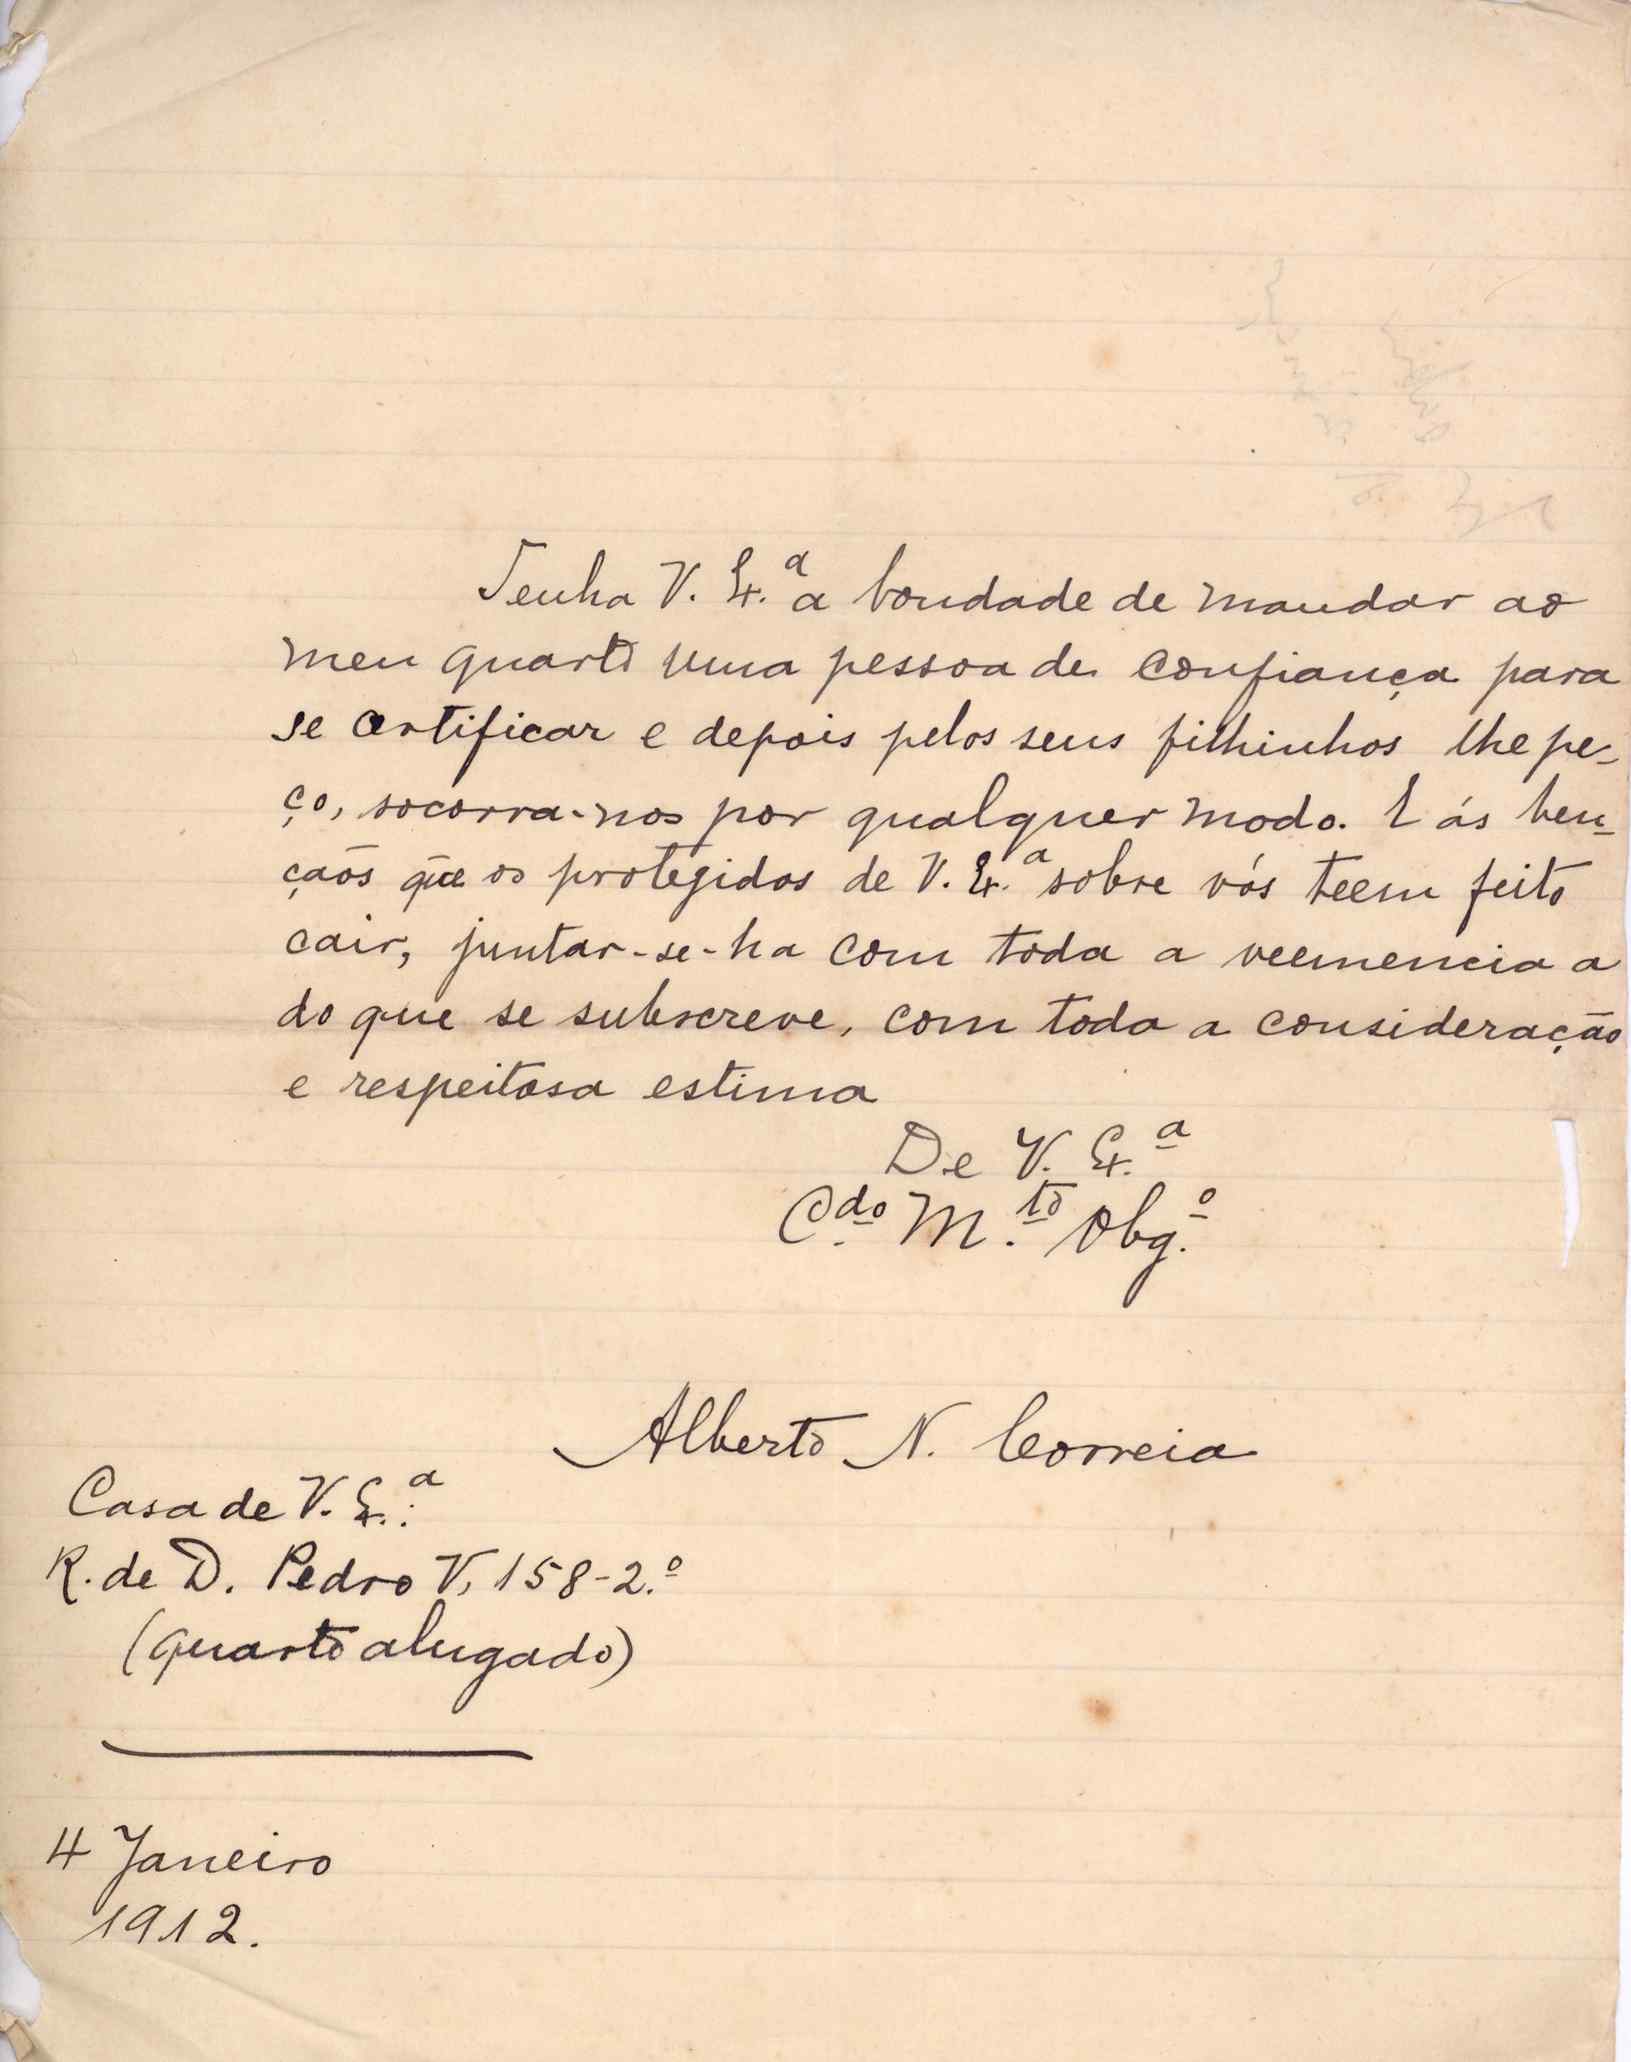 Tenha V. Ex.ª a bondade de mandar ao
meu quarto uma pessoa de confiança para
se certificar e depois pelos seus filhinhos lhe pe-
ço, socorra-nos por qualquer modo. E ás ben-
çãos que os protegidos de V. Ex.ª sobre vós teem feito
cair, juntar-se-ha com toda a veemencia a
do que se subscreve, com toda a consideração
e respeitosa estima
De V. Ex.ª
C.do M.to Obg.º
Alberto N. Correia
Casa de V. Ex.ª:
R. de D. Pedro V, 158-2.º
(quarto alugado)
4 Janeiro
1912.